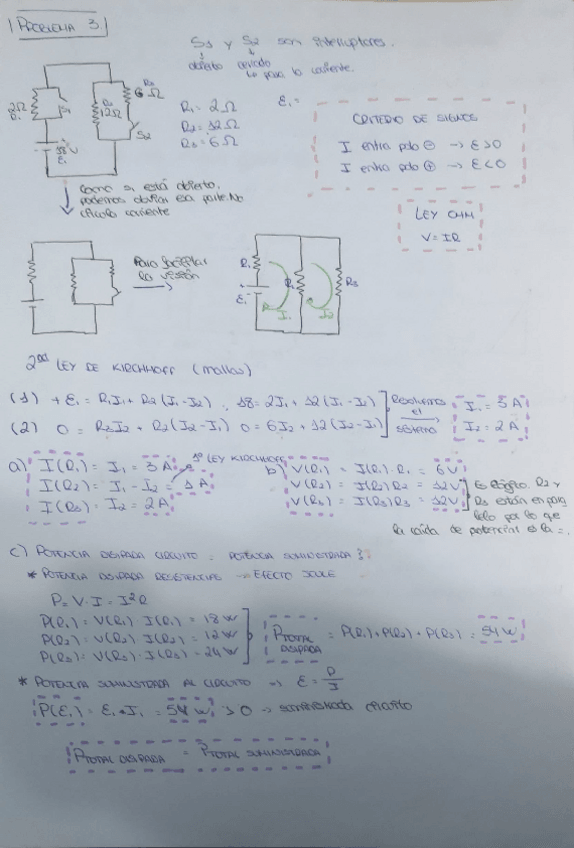 PROBLEMA 3
S1 y S2 son interruptores.
abierto cerrado
↳ pasa la corriente.
2Ω
R1
S1
R2
12Ω
R3
6Ω
S2
18V
ε1
R1 = 2Ω
R2 = 12Ω
R3 = 6Ω
ε1 =
CRITERIO DE SIGNOS
I entra polo ⊖ → ε>0
I entra polo ⊕ → ε<0
LEY OHM
V = IR
Como s1 está abierto,
podemos obviar esa parte. No
circula corriente
Para facilitar
la visión
R1
ε1
I1
I2
R3
2ª LEY DE KIRCHHOFF (mallas)
(1) + ε1 = R1I1 + R2(I1-I2) 18 = 2I1 + 12(I1-I2)
(2) 0 = R3I2 + R2(I2-I1) 0 = 6I2 + 12(I2-I1)
Resolvemos
el
sistema
I1 = 3A
I2 = 2A
a) I(R1) = I1 = 3A
1ª LEY KIRCHHOFF
I(R2) = I1 - I2 = 1A
I(R3) = I2 = 2A
b) V(R1) = I(R1)·R1 = 6V
V(R2) = I(R2)R2 = 12V
V(R3) = I(R3)R3 = 12V
Es lógico. R2 y
R3 están en para
lelo por lo que
la caída de potencial es la =.
c) POTENCIA DISIPADA CIRCUITO = POTENCIA SUMINISTRADA?
* POTENCIA DISIPADA RESISTENCIAS → EFECTO JOULE
P = V·I = I²R
P(R1) = V(R1)·I(R1) = 18W
P(R2) = V(R2)·I(R2) = 12W
P(R3) = V(R3)·I(R3) = 24W
PTOTAL DISIPADA = P(R1)+P(R2)+P(R3) = 54W
* POTENCIA SUMINISTRADA AL CIRCUITO ⇒ ε = P/I
P(ε1) = ε1·I1 = 54W > 0 → suministrada circuito
PTOTAL DISIPADA = PTOTAL SUMINISTRADA